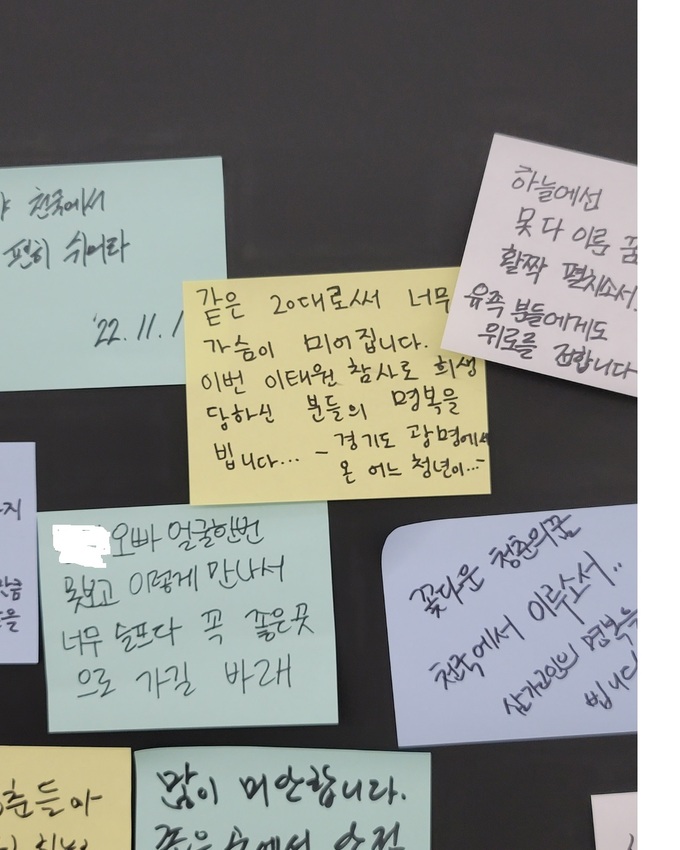 천국에서
편히 쉬어라
'22. 11. 1
같은 20대로써 너무
가슴이 미어집니다.
이번 이태원 참사로 희생
당하신 분들의 명복을
빕니다... - 경기도 광명에서
온 어느 청년이...-
하늘에선
못 다 이룬 꿈
활짝 펼치소서.
유족 분들에게도
위로를 전합니다
오빠 얼굴한번
못보고 이렇게 만나서
너무 슬프다 꼭 좋은곳
으로 가길 바래
꽃다운 청춘의꿈
천국에서 이루소서..
삼가고인의 명복을
빕니다
춘들아
많이 미안합니다.
좋은 곳에서 안전